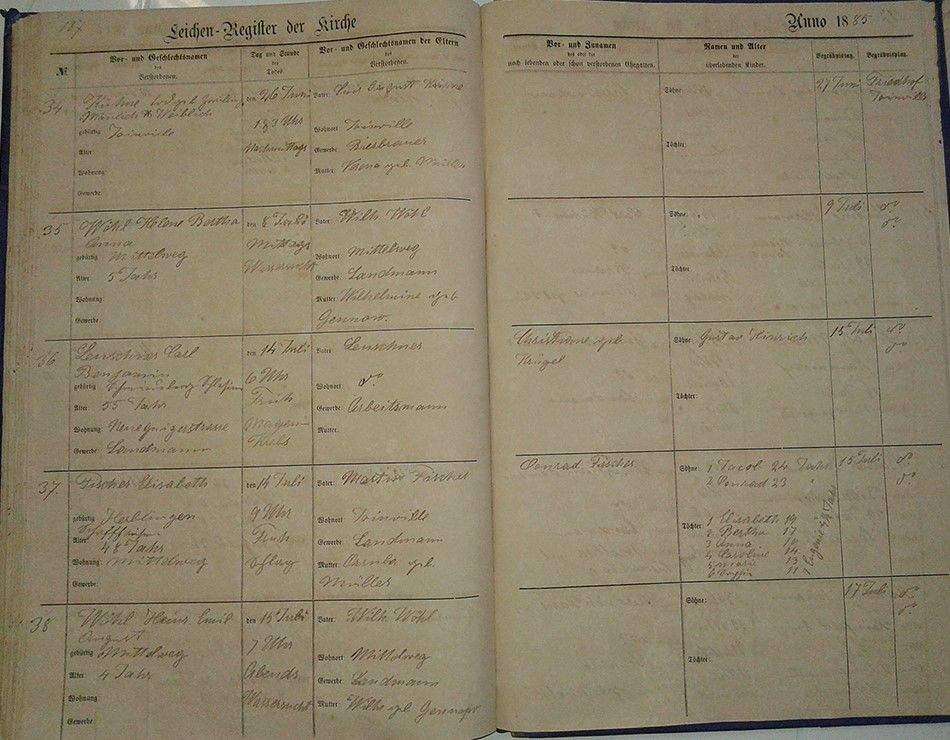 127
Leichen-Register der Kirche
Anno 1885
№
Vor- und Geschlechtsnamen
des
Verstorbenen.
Tag und Stunde
des
Todes
Vor- und Geschlechtsnamen der Eltern
des
Verstorbenen.
Vor- und Zunamen
des oder der
noch lebenden oder schon verstorbenen Ehegatten.
Namen und Alter
der
überlebenden Kinder.
Begräbnistag.
Begräbnisplatz.
34
Kühne
Männlich Weiblich
gebürtig Joinville
Alter:
Wohnung:
Gewerbe:
den 26 Juni
Uhr
Nachmittags
Vater: August Kühne
Wohnort Joinville
Gewerbe: Bierbrauer
Mutter: geb.
Söhne:
Töchter:
27 Juni
Friedhof
Joinville
35
Wöhl Helene Bertha
Anna
gebürtig Mittelweg
Alter: 5 Jahr
Wohnung:
Gewerbe:
den 8 Juli
Mittags
Wassersucht
Vater: Wilh Wöhl
Wohnort Mittelweg
Gewerbe: Landmann
Mutter: Wilhelmine geb
Gennow.
Söhne:
Töchter:
9 Juli
do
do
36
Leuschner Carl
Benjamin
gebürtig Schmiedeberg Schlesien
Alter: 55 Jahr
Wohnung:
Gewerbe: Landmann
den 14 Juli
6 Uhr
Früh
Magen
Krebs
Vater Leuschner
Wohnort do
Gewerbe: Arbeitsmann
Mutter:
Christiane geb.
Krügel
Söhne: Gustav Heinrich
Töchter:
15 Juli
do
do
37
Fischer Elisabeth
gebürtig
Schaffhausen
Alter: 48 Jahr
Wohnung: Mitteldweg
Gewerbe:
den 14 Juli
9 Uhr
Früh
Schlag
Vater: Martin Fischer
Wohnort Joinville
Gewerbe: Landmann
Mutter: geb.
Müller
Conrad Fischer
Söhne: 1 Jacob 24 Jahr
2 Conrad 23 "
Töchter: 1 Elisabeth 19
2 Bertha 17
3 Anna 16
4 Caroline 14
5 Marie 13
6 Sophie 11
7 Eugenie
15 Juli
do
do
38
Wöhl Heinr Emil
August
gebürtig Mitteldweg
Alter: 4 Jahr
Wohnung:
Gewerbe:
den 15 Juli
7 Uhr
Abends
Wassersucht
Vater: Wilh. Wöhl
Wohnort Mitteldweg
Gewerbe: Landmann
Mutter: Wilh. geb. Gennow
Söhne:
Töchter:
17 Juli
do
do